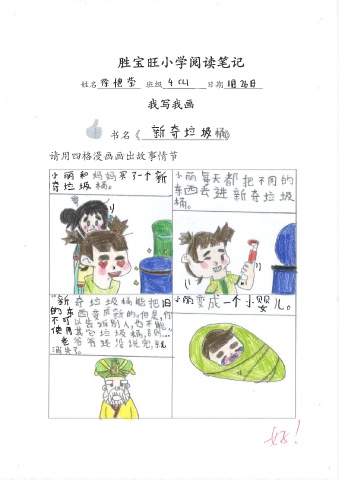 胜宝旺小学阅读笔记
姓名 徐艳莹 班级 4C4 日期 1月26日
我写我画
书名《新奇垃圾桶》
请用四格漫画画出故事情节
小丽和妈妈买了一个新
奇垃圾桶。
小丽每天都把不同的
东西丢进新奇垃圾
桶。
"新奇垃圾桶能把旧
的东西变成新的。但是,你
不可以告诉别人,也不能
使用其它垃圾桶,否则……"
老爷爷还没说完,就
消失了。
小丽变成一个小婴儿。
好!